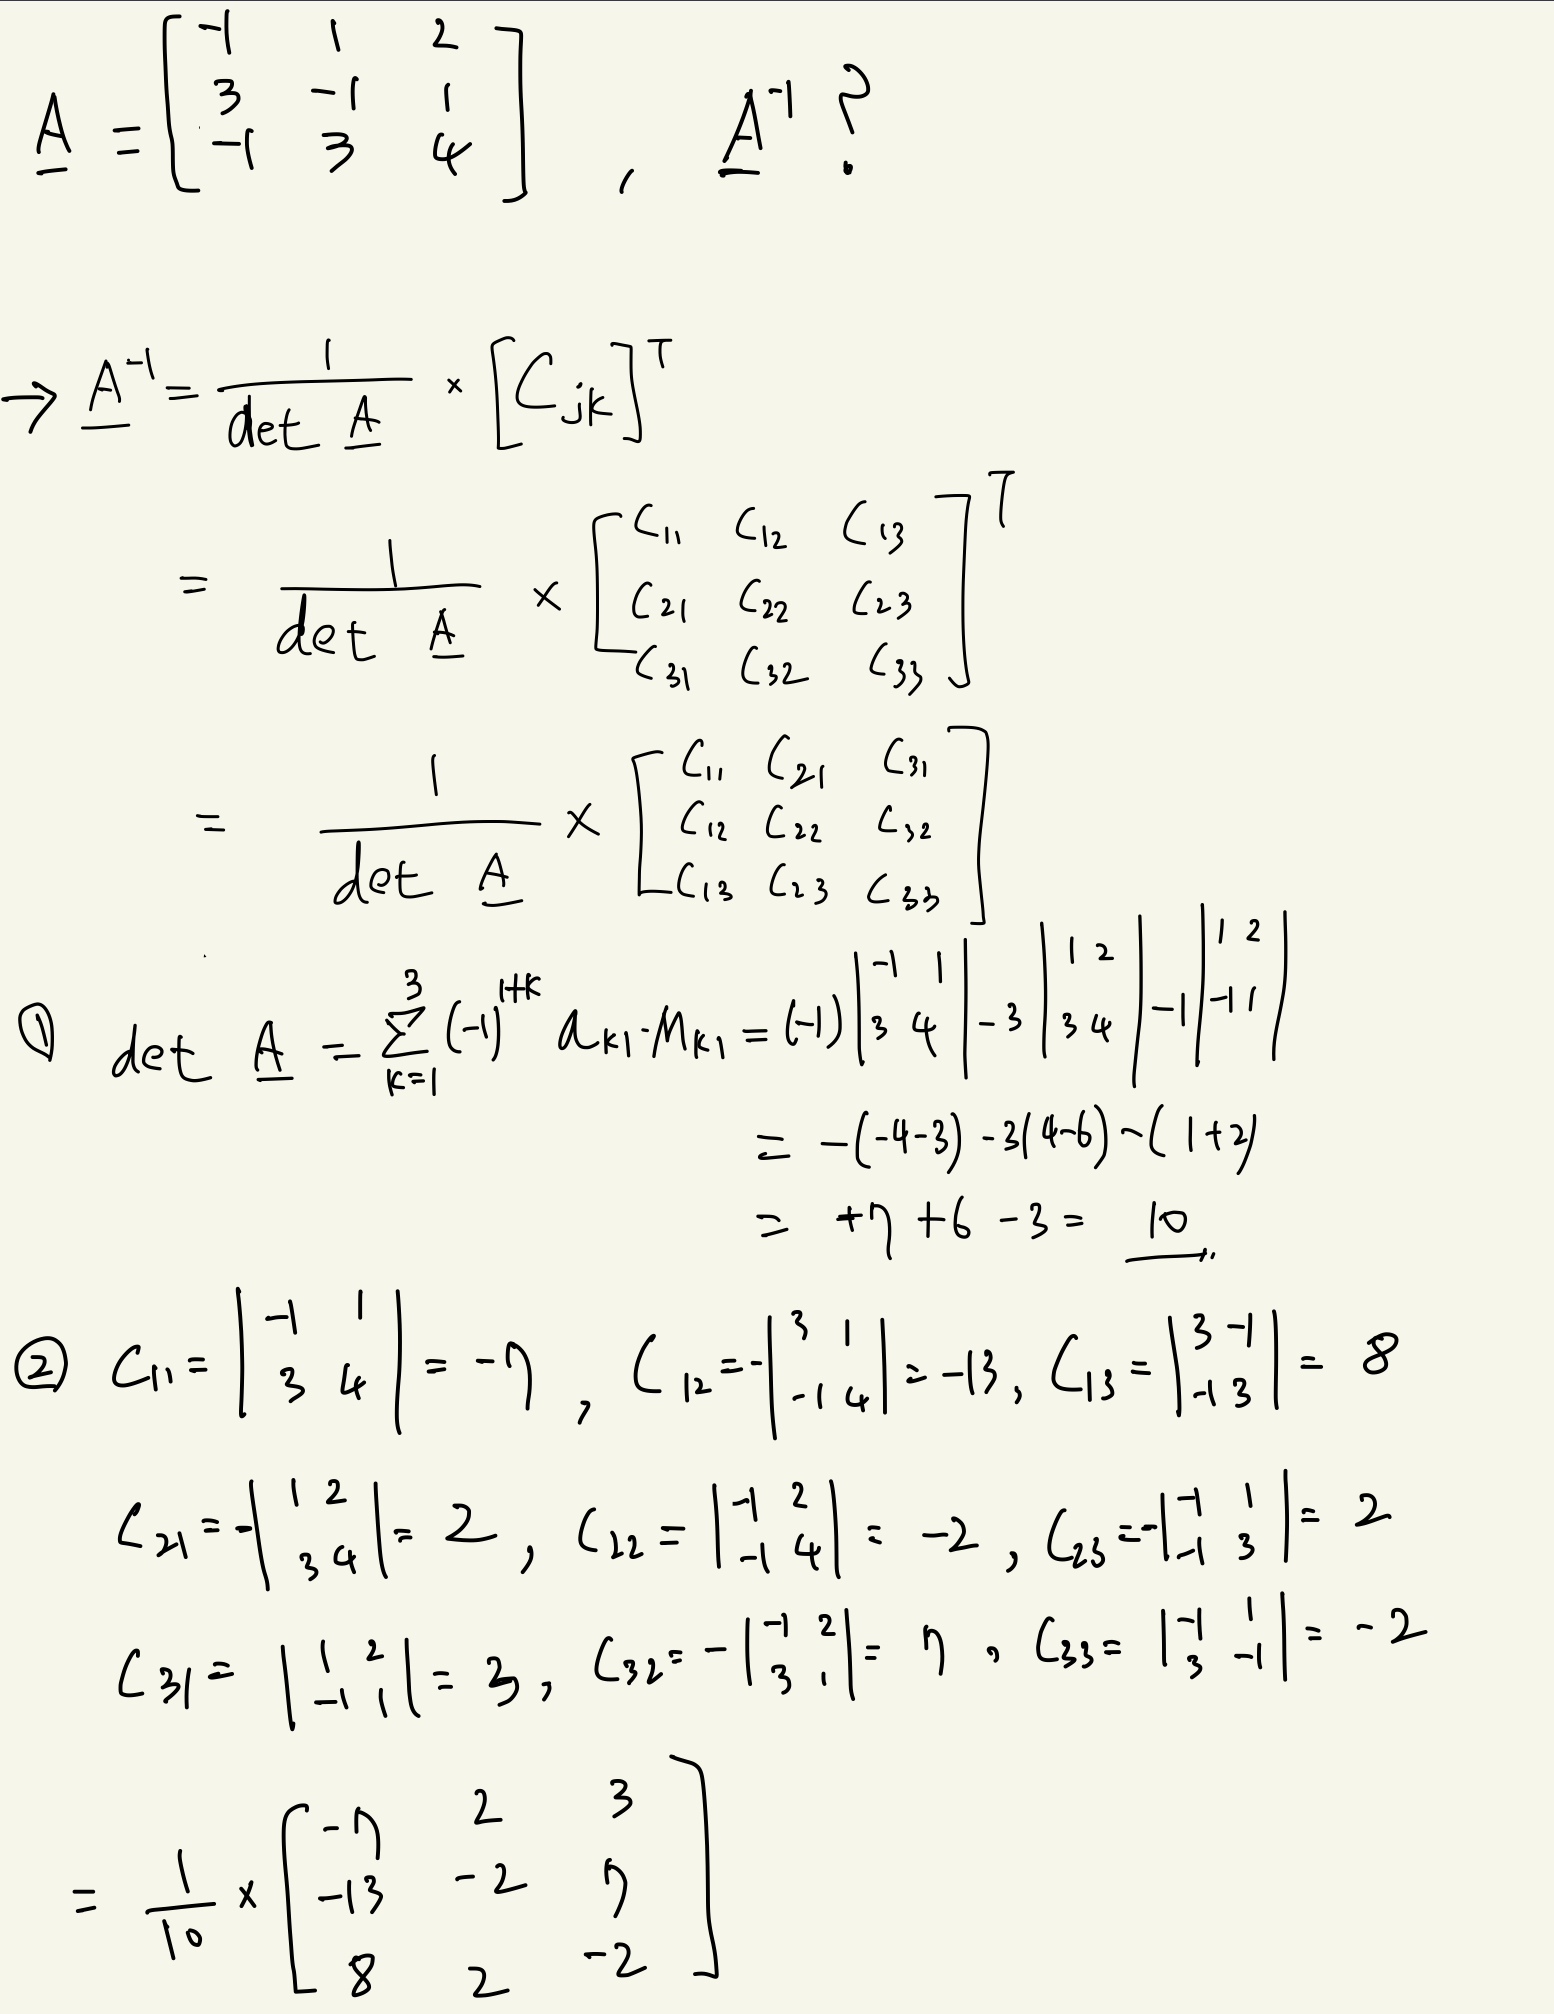 A = [ -1 1 2
3 -1 1
-1 3 4 ] , A⁻¹ ?
→ A⁻¹ = 1 / det A × [C_jk]^T
= 1 / det A × [ C₁₁ C₁₂ C₁₃
C₂₁ C₂₂ C₂₃
C₃₁ C₃₂ C₃₃ ]^T
= 1 / det A × [ C₁₁ C₂₁ C₃₁
C₁₂ C₂₂ C₃₂
C₁₃ C₂₃ C₃₃ ]
① det A = Σ_{k=1}^{3} (-1)^{1+k} a_{k1}·M_{k1} = (-1) | -1 1 ; 3 4 | - 3 | 1 2 ; 3 4 | - 1 | 1 2 ; -1 1 |
= -(-4-3) -3(4-6) -(1+2)
= +7 +6 -3 = 10
② C₁₁ = | -1 1 ; 3 4 | = -7 , C₁₂ = - | 3 1 ; -1 4 | = -13, C₁₃ = | 3 -1 ; -1 3 | = 8
C₂₁ = - | 1 2 ; 3 4 | = 2 , C₂₂ = | -1 2 ; -1 4 | = -2 , C₂₃ = - | -1 1 ; -1 3 | = 2
C₃₁ = | 1 2 ; -1 1 | = 3 , C₃₂ = - | -1 2 ; 3 1 | = 7 , C₃₃ = | -1 1 ; 3 -1 | = -2
= 1/10 × [ -7 2 3
-13 -2 7
8 2 -2 ]